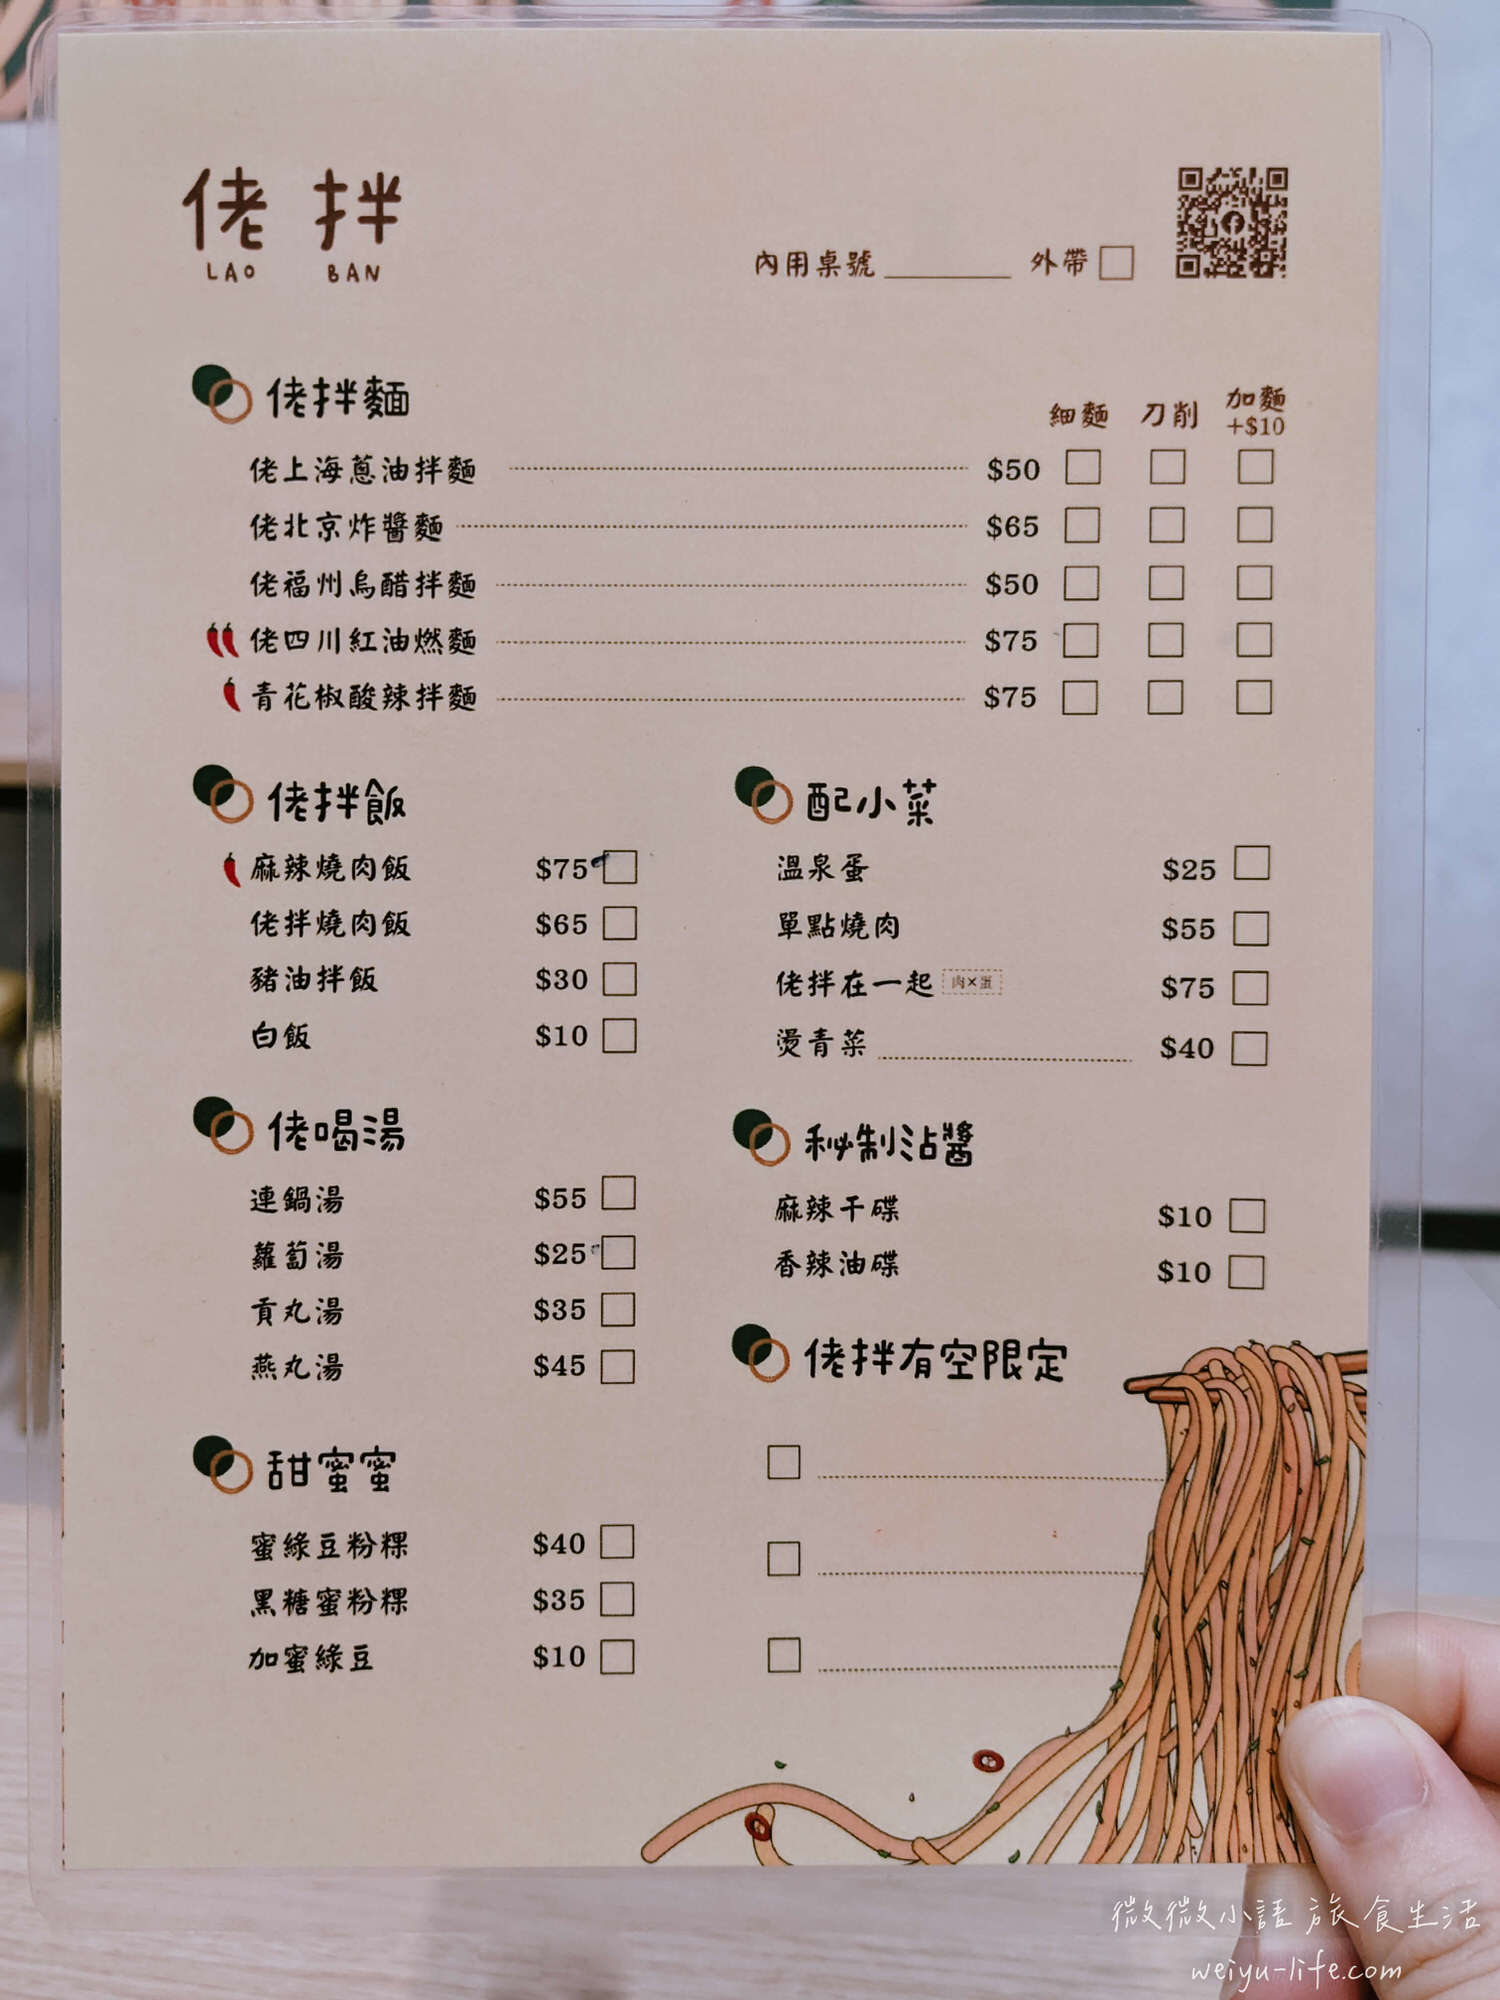 佬拌
LAO BAN
內用桌號 外帶
佬拌麵
細麵 刀削 加麵 +$10
佬上海蔥油拌麵 $50
佬北京炸醬麵 $65
佬福州烏醋拌麵 $50
佬四川紅油燃麵 $75
青花椒酸辣拌麵 $75
佬拌飯
麻辣燒肉飯 $75
佬拌燒肉飯 $65
豬油拌飯 $30
白飯 $10
配小菜
溫泉蛋 $25
單點燒肉 $55
佬拌在一起 肉×蛋 $75
燙青菜 $40
佬喝湯
連鍋湯 $55
蘿蔔湯 $25
貢丸湯 $35
燕丸湯 $45
秘制沾醬
麻辣干碟 $10
香辣油碟 $10
佬拌有空限定
甜蜜蜜
蜜綠豆粉粿 $40
黑糖蜜粉粿 $35
加蜜綠豆 $10
微微小語 旅食生活
weiyu-life.com